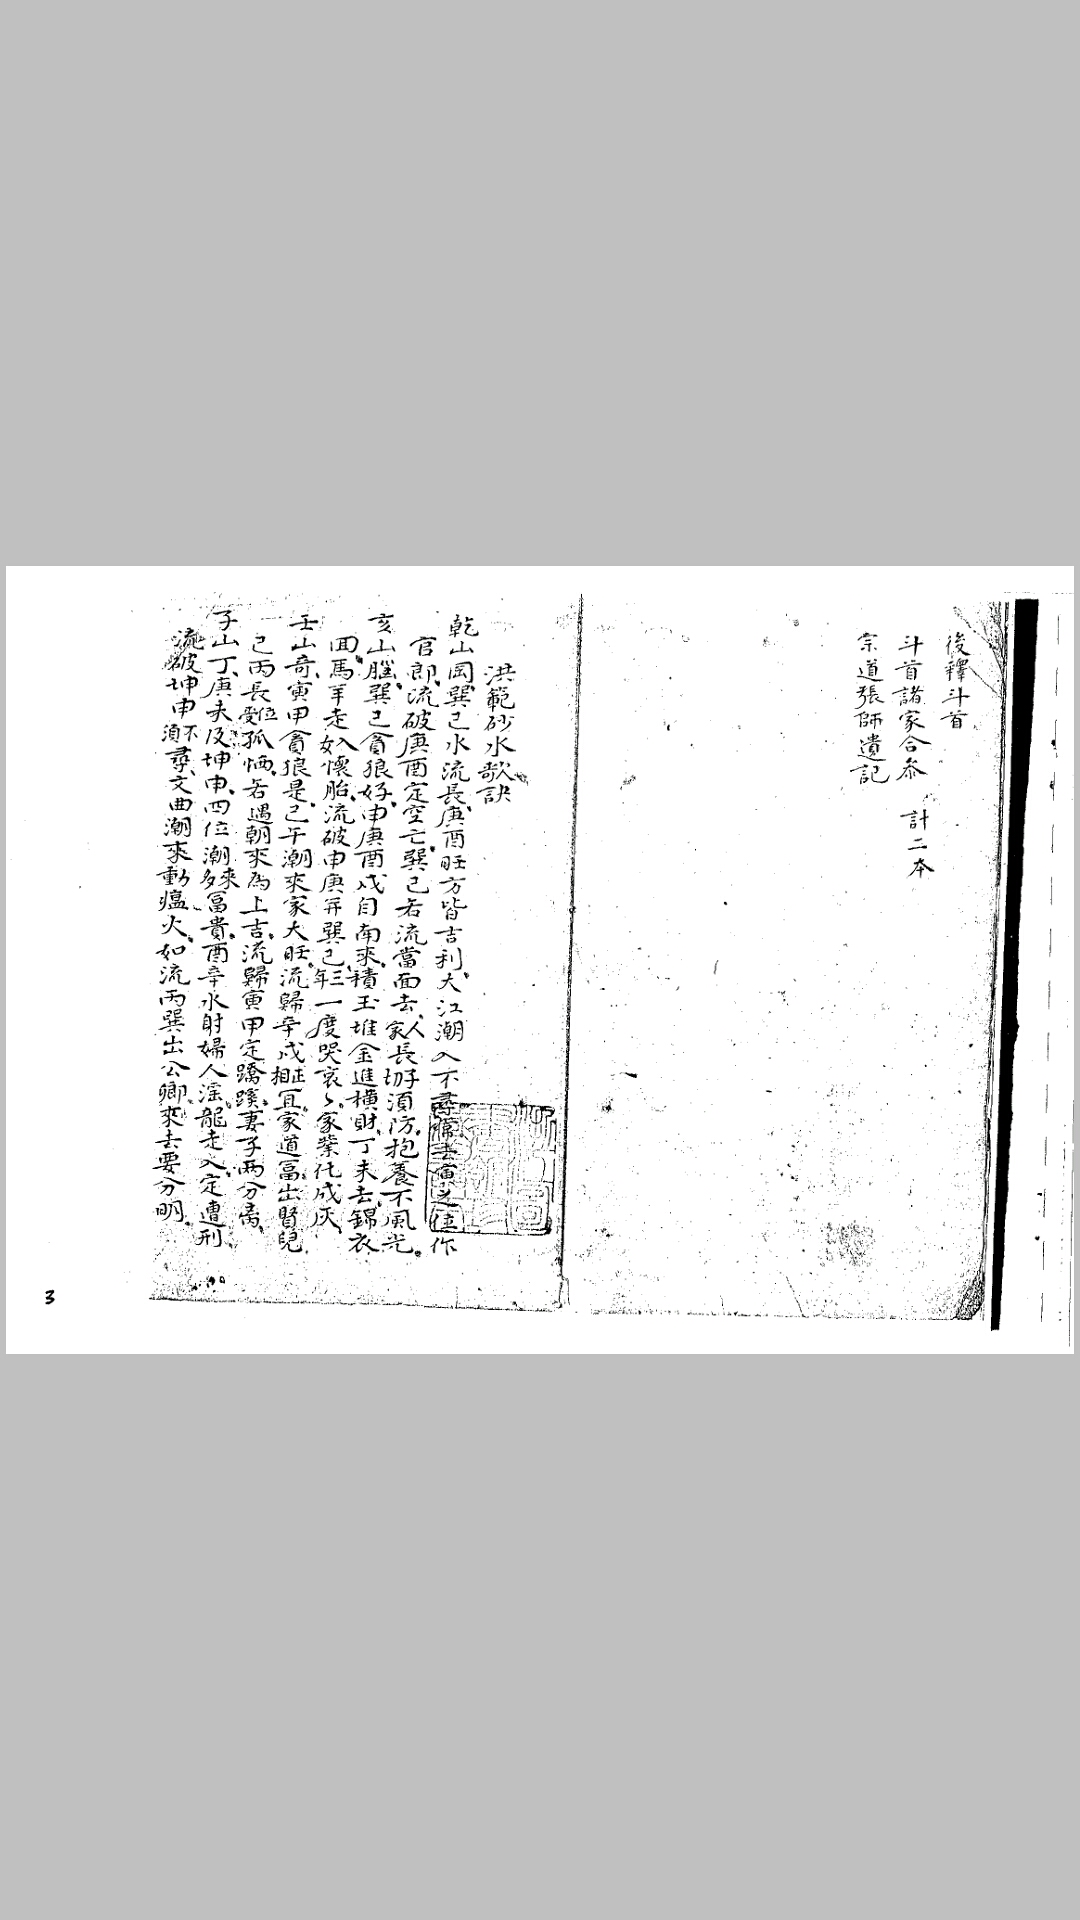 後釋斗首
斗首諸家合參 計二本
宗道張師遺記
洪範砂水歌訣
乾山岡巽巳水流長庚酉旺方皆吉利大江潮入不尋常去寅之位作
官郎流破庚酉定空亡巽巳若流當面去人家長切子須防抱養不風光
亥山騰巽巳貪狼好申庚酉戌自南來積玉堆金進橫財丁未去錦衣
回馬羊走入女懷胎流破申庚并巽巳三年一度哭哀哀家業化成灰
壬山奇寅甲貪狼是巳午潮來家大旺流歸辛戌正相宜家道富出賢兒
巳丙長位受孤恓若遇朝來為上吉流歸寅甲定蹺蹊妻子兩分离
子山丁庚未及坤申四位潮來多富貴酉辛水射婦人淫龍走入定遭刑
流破坤申不須尋文曲潮來動瘟火如流丙巽出公卿來去要分明
3